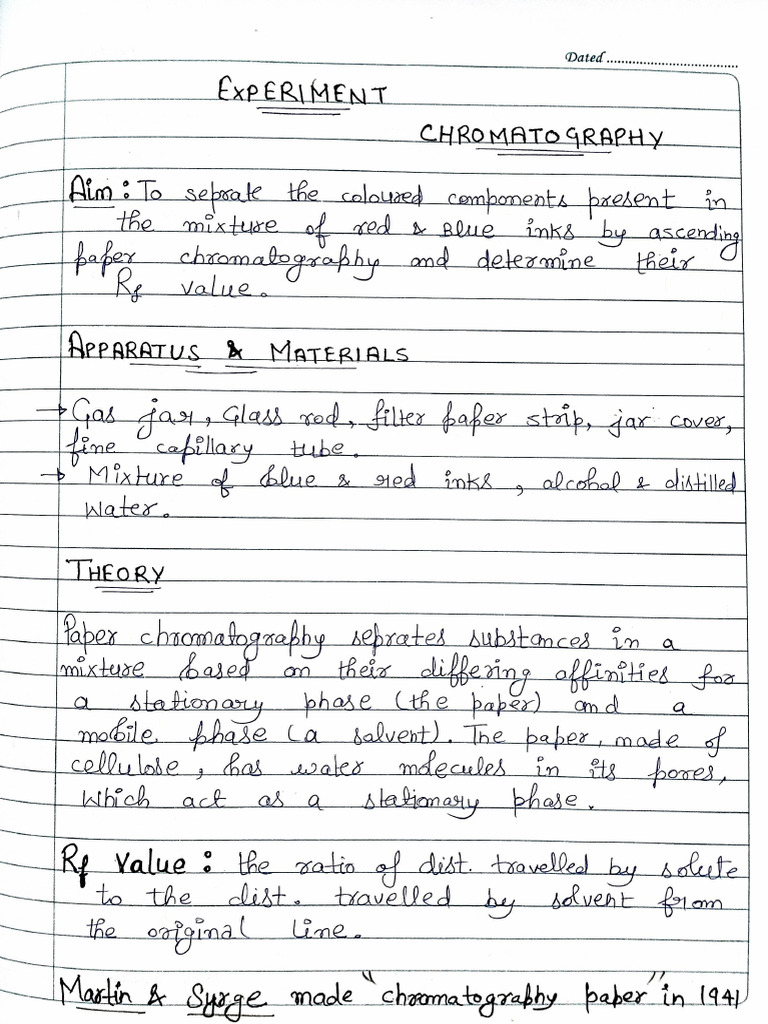 Dated
EXPERIMENT
CHROMATOGRAPHY
Aim : To seprate the coloured components present in
the mixture of red & Blue inks by ascending
paper chromatography and determine their
Rf value.
APPARATUS & MATERIALS
→ Gas jar, Glass rod, filter paper strip, jar cover,
fine capillary tube.
→ Mixture of blue & red inks, alcohol & distilled
Water.
THEORY
Paper chromatography seprates substances in a
mixture based on their differing affinities for
a stationary phase (the paper) and a
mobile phase (a solvent). The paper, made of
cellulose, has water molecules in its pores,
Which act as a stationary phase.
Rf Value : the ratio of dist. travelled by solute
to the dist. travelled by solvent from
the original line.
Martin & Syrge made "chromatography paper" in 1941